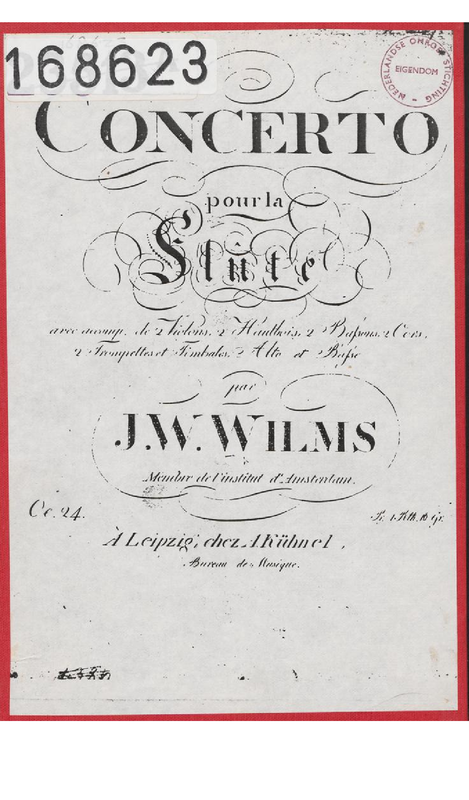 168623
NEDERLANDSE OMROEP STICHTING
EIGENDOM
CONCERTO
pour la
Flûte
avec accomp. de 2 Violons, 2 Hautbois, 2 Bassons, 2 Cors,
2 Trompettes et Timbales, 2 Alto et Basse
par
J.W. WILMS
Membre de l'institut d'Amsterdam.
Oe. 24.
Pr. 1 Rth. 16 gr.
À Leipzig, chez A. Kühnel,
Bureau de Musique.